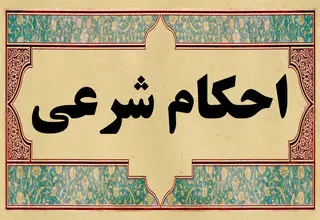 احکام شرعی